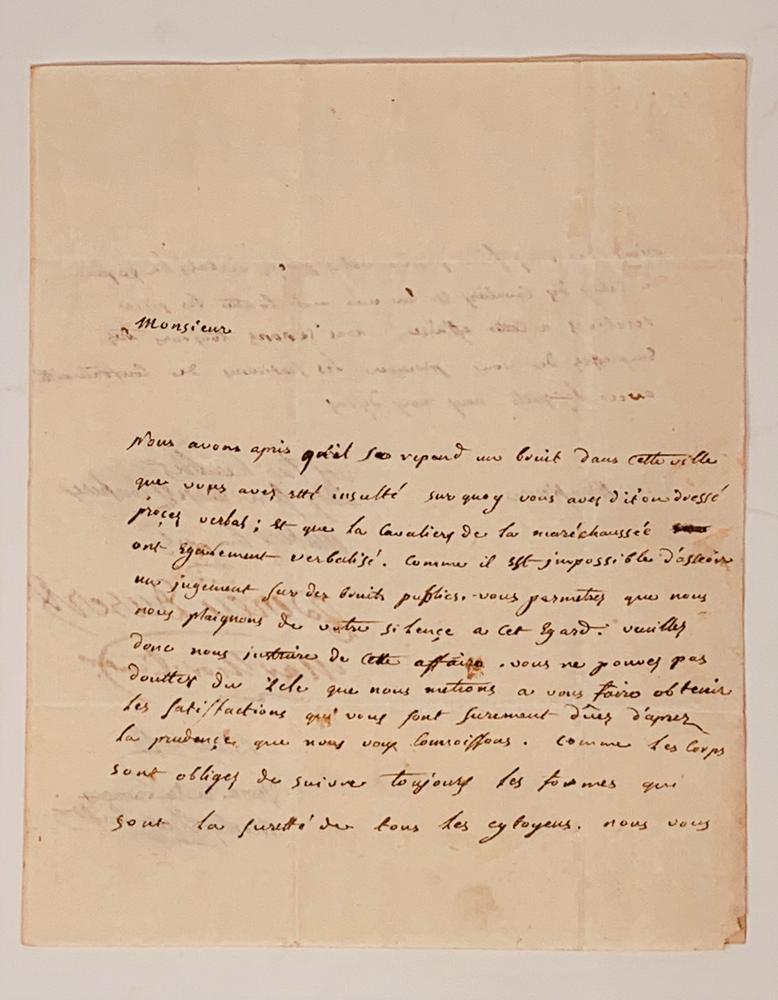 Monsieur
Nous avons apris qu'il se repend un bruit dans cette ville
que vous aves etté insulté sur quoy vous aves dit on dressé
procez verbal; et que la Cavaliers de la maréchaussée
ont Egalement verbalisé. Comme il est impossible d'asseoir
un jugement sur des bruits publics. vous permetres que nous
nous plaignons de votre silençe a Cet Egard. veuilles
donc nous instruire de Cette affaire. vous ne pouves pas
douttes du Zele que nous metions a vous faire obtenir
les satisfactions qui vous sont surement dûes d'aprez
la prudençe que nous vous Connoissons. Comme les Corps
sont obliges de suivre toujours les formes qui
sont la suretté de tous les cytoyens. nous vous